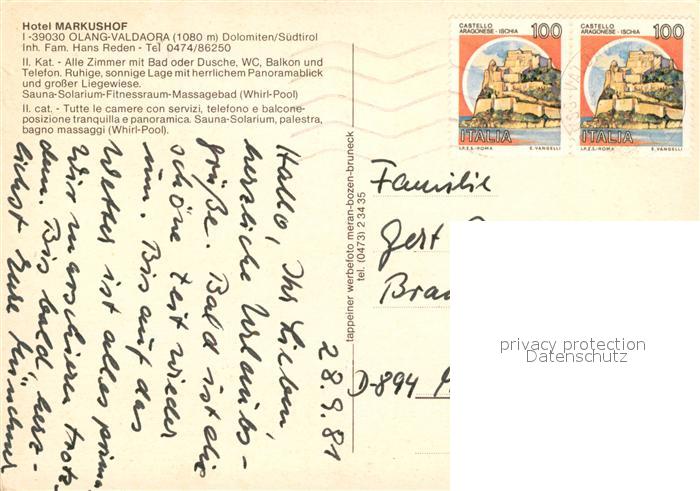 Hotel MARKUSHOF
I -39030 OLANG-VALDAORA (1080 m) Dolomiten/Südtirol
Inh. Fam. Hans Reden - Tel 0474/86250
II. Kat. - Alle Zimmer mit Bad oder Dusche, WC, Balkon und
Telefon. Ruhige, sonnige Lage mit herrlichem Panoramablick
und großer Liegewiese.
Sauna-Solarium-Fitnessraum-Massagebad (Whirl-Pool)
II. cat. - Tutte le camere con servizi, telefono e balcone-
posizione tranquilla e panoramica. Sauna-Solarium, palestra,
bagno massaggi (Whirl-Pool).
CASTELLO
ARAGONESE - ISCHIA
100
ITALIA
I.P.Z.S.-ROMA E. VANGELLI
CASTELLO
ARAGONESE - ISCHIA
100
ITALIA
I.P.Z.S.-ROMA E. VANGELLI
tappeiner werbefoto meran-bozen-bruneck
tel. (0473) 2 34 35
28.9.81
Hallo, Ihr Lieben,
herzliche Urlaubs-
grüße. Bald ist die
schöne Zeit wieder
um. Bis auf das
Wetter ist alles prima
Wir marschieren trotz-
dem. Bis bald, herz-
lichst Eure Münchner
Familie
Gert
D-894
privacy protection
Datenschutz